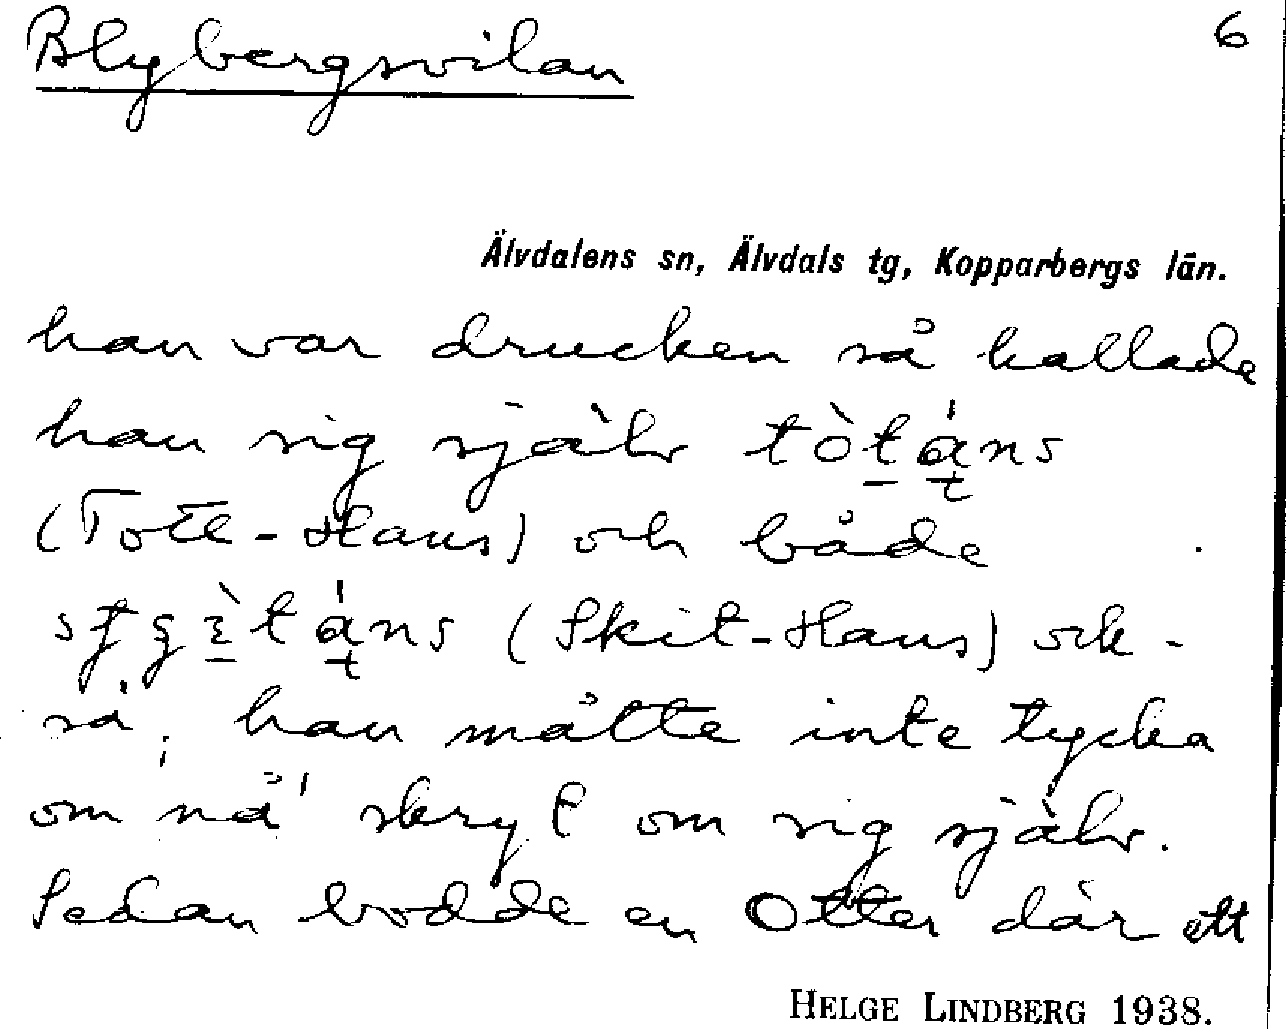 Blybergsvilan
6
Älvdalens sn, Älvdals tg, Kopparbergs län.
han var drucken så kallade
han sig själv
(Tote-Hans) och både
(Skit-Hans) ock-
så; han måtte inte tycka
om nå' skryt om sig själv.
Sedan bodde en Otter där ett
HELGE LINDBERG 1938.